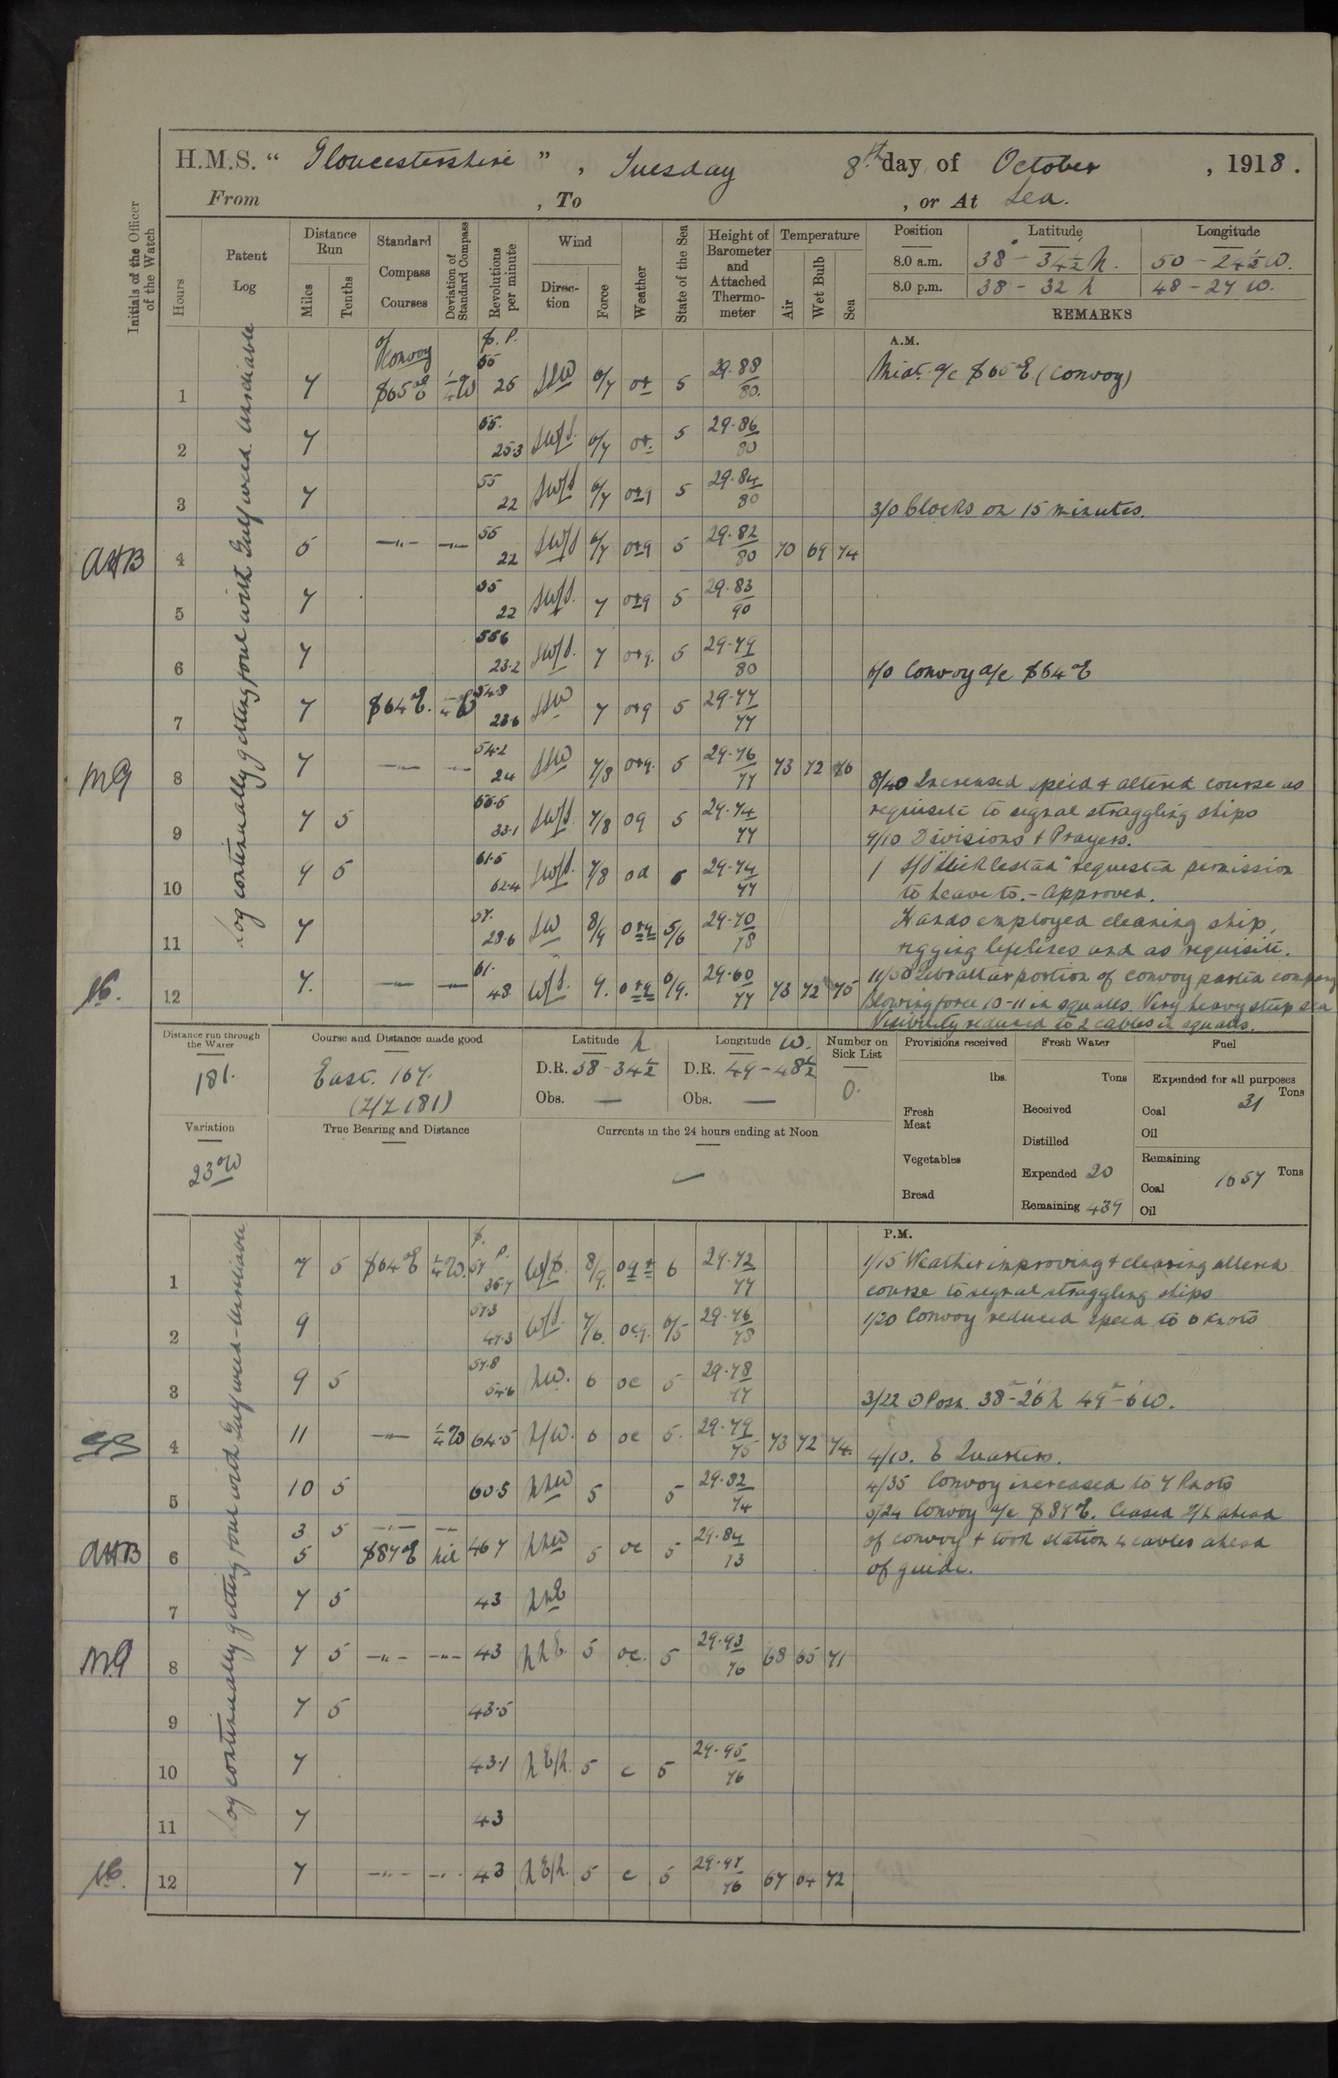 H.M.S. “ Gloucestershire ” , Tuesday 8th day of October , 1918 .
From , To , or At Sea.
Initials of the Officer of the Watch
Hours
Patent Log
Distance Run
Miles
Tenths
Standard Compass Courses
Deviation of Standard Compass
Revolutions per minute
Wind
Direction
Force
Weather
State of the Sea
Height of Barometer and Attached Thermometer
Temperature
Air
Wet Bulb
Sea
Position Latitude Longitude
8.0 a.m. 38° - 34½' N. 50 - 24½ W.
8.0 p.m. 38 - 32 N 48 - 27 W.
REMARKS
A.M.
Log continually getting foul with Gulf weed. Unreliable
of Convoy S. P.
1 7 S65°E ¼W 55 25 SSW 6/7 or 5 29.88 80. Mid. a/c S65°E (Convoy)
2 7 55. 25.3 SWfS. 6/7 or. 5 29.86 80
3 7 55 22 SWfS 6/7 orq 5 29.84 80 3/0 Clocks on 15 minutes.
AHB 4 5 —"— —"— 55 22 SWfS 6/7 orq 5 29.82 80 70 69 74
5 7 55 22 SWfS. 7 orq 5 29.83 90
6 7 55.6 23.2 SWfS. 7 orq. 5 29.79 80 6/0 Convoy a/c S64°E
7 7 S64°E. ¼W 54.8 23.6 SSW 7 orq 5 29.77 77
MG 8 7 —"— —"— 54.2 24 SSW 7/8 orq. 5 29.76 77 73 72 76
8/40 Increased speed & altered course as
9 7 5 55.5 33.1 SWfS. 7/8 oq 5 29.74 77
requisite to signal straggling ships
9/10 Divisions & Prayers.
10 9 5 61.5 62.4 SWfS. 7/8 od 6 29.74 77
requested permission
to heave to. - Approved.
11 7 57. 28.6 SW 8/9 orq 5/6 29.70 78
Hands employed cleaning ship,
rigging lifelines and as requisite.
12 7. —"— —"— 61. 48 WfS. 9. orq 6/9. 29.60 77 73 72 75
11/50 Gibraltar portion of convoy parted company
Blowing force 10-11 in squalls. Very heavy steep sea
Visibility reduced to 2 cables in squalls.
Distance run through the Water
181.
Course and Distance made good
East. 167.
(Z/Z 181)
Latitude N
D.R. 38-34½
Obs. —
Longitude W.
D.R. 49-48½
Obs. —
Number on Sick List
0.
Provisions received
lbs.
Fresh Meat
Vegetables
Bread
Fresh Water
Tons
Received
Distilled
Expended 20
Remaining 439
Fuel
Expended for all purposes
Tons
Coal 31
Oil
Remaining
Coal 1657 Tons
Oil
Variation
23°W
True Bearing and Distance
Currents in the 24 hours ending at Noon
—
P.M.
Log continually getting foul with Gulf weed - Unreliable
S. P.
1 7 5 S64°E ¼W. 57 35.7 WfS. 8/9. oqr 6 29.72 77
1/15 Weather improving & clearing altered
course to signal straggling ships
2 9 57.3 47.3 WfS. 7/6. ocq. 6/5 29.76 78
1/20 Convoy reduced speed to 6 knots
3 9 5 57.8 54.6 NW. 6 oc 5 29.78 77
3/22 Posn. 38°-26' N 49°-6' W.
4 11 —"— ¼W 64.5 N/W. 6 oc 5. 29.79 75 73 72 74.
4/10. E Quarters.
5 10 5 60.5 NNW 5 5 29.82 74
4/35 Convoy increased to 7 Knots
5/24 Convoy a/c S87°E. Ceased Z/Z ahead
3 5 —"— —"—
AHB 6 5 S87°E nil 46.7 NNW 5 oc 5 29.84 73
of convoy & took station 4 cables ahead
of guide.
7 7 5 43 NNE
MG 8 7 5 —"— —"— 43 NNE. 5 oc. 5 29.93 76 68 65 71
9 7 5 43.5
10 7 43.1 NE/N. 5 c 5 29.95 76
11 7 43
12 7 —"— —"— 43 NE/N. 5 c 5 29.97 76 67 64 72